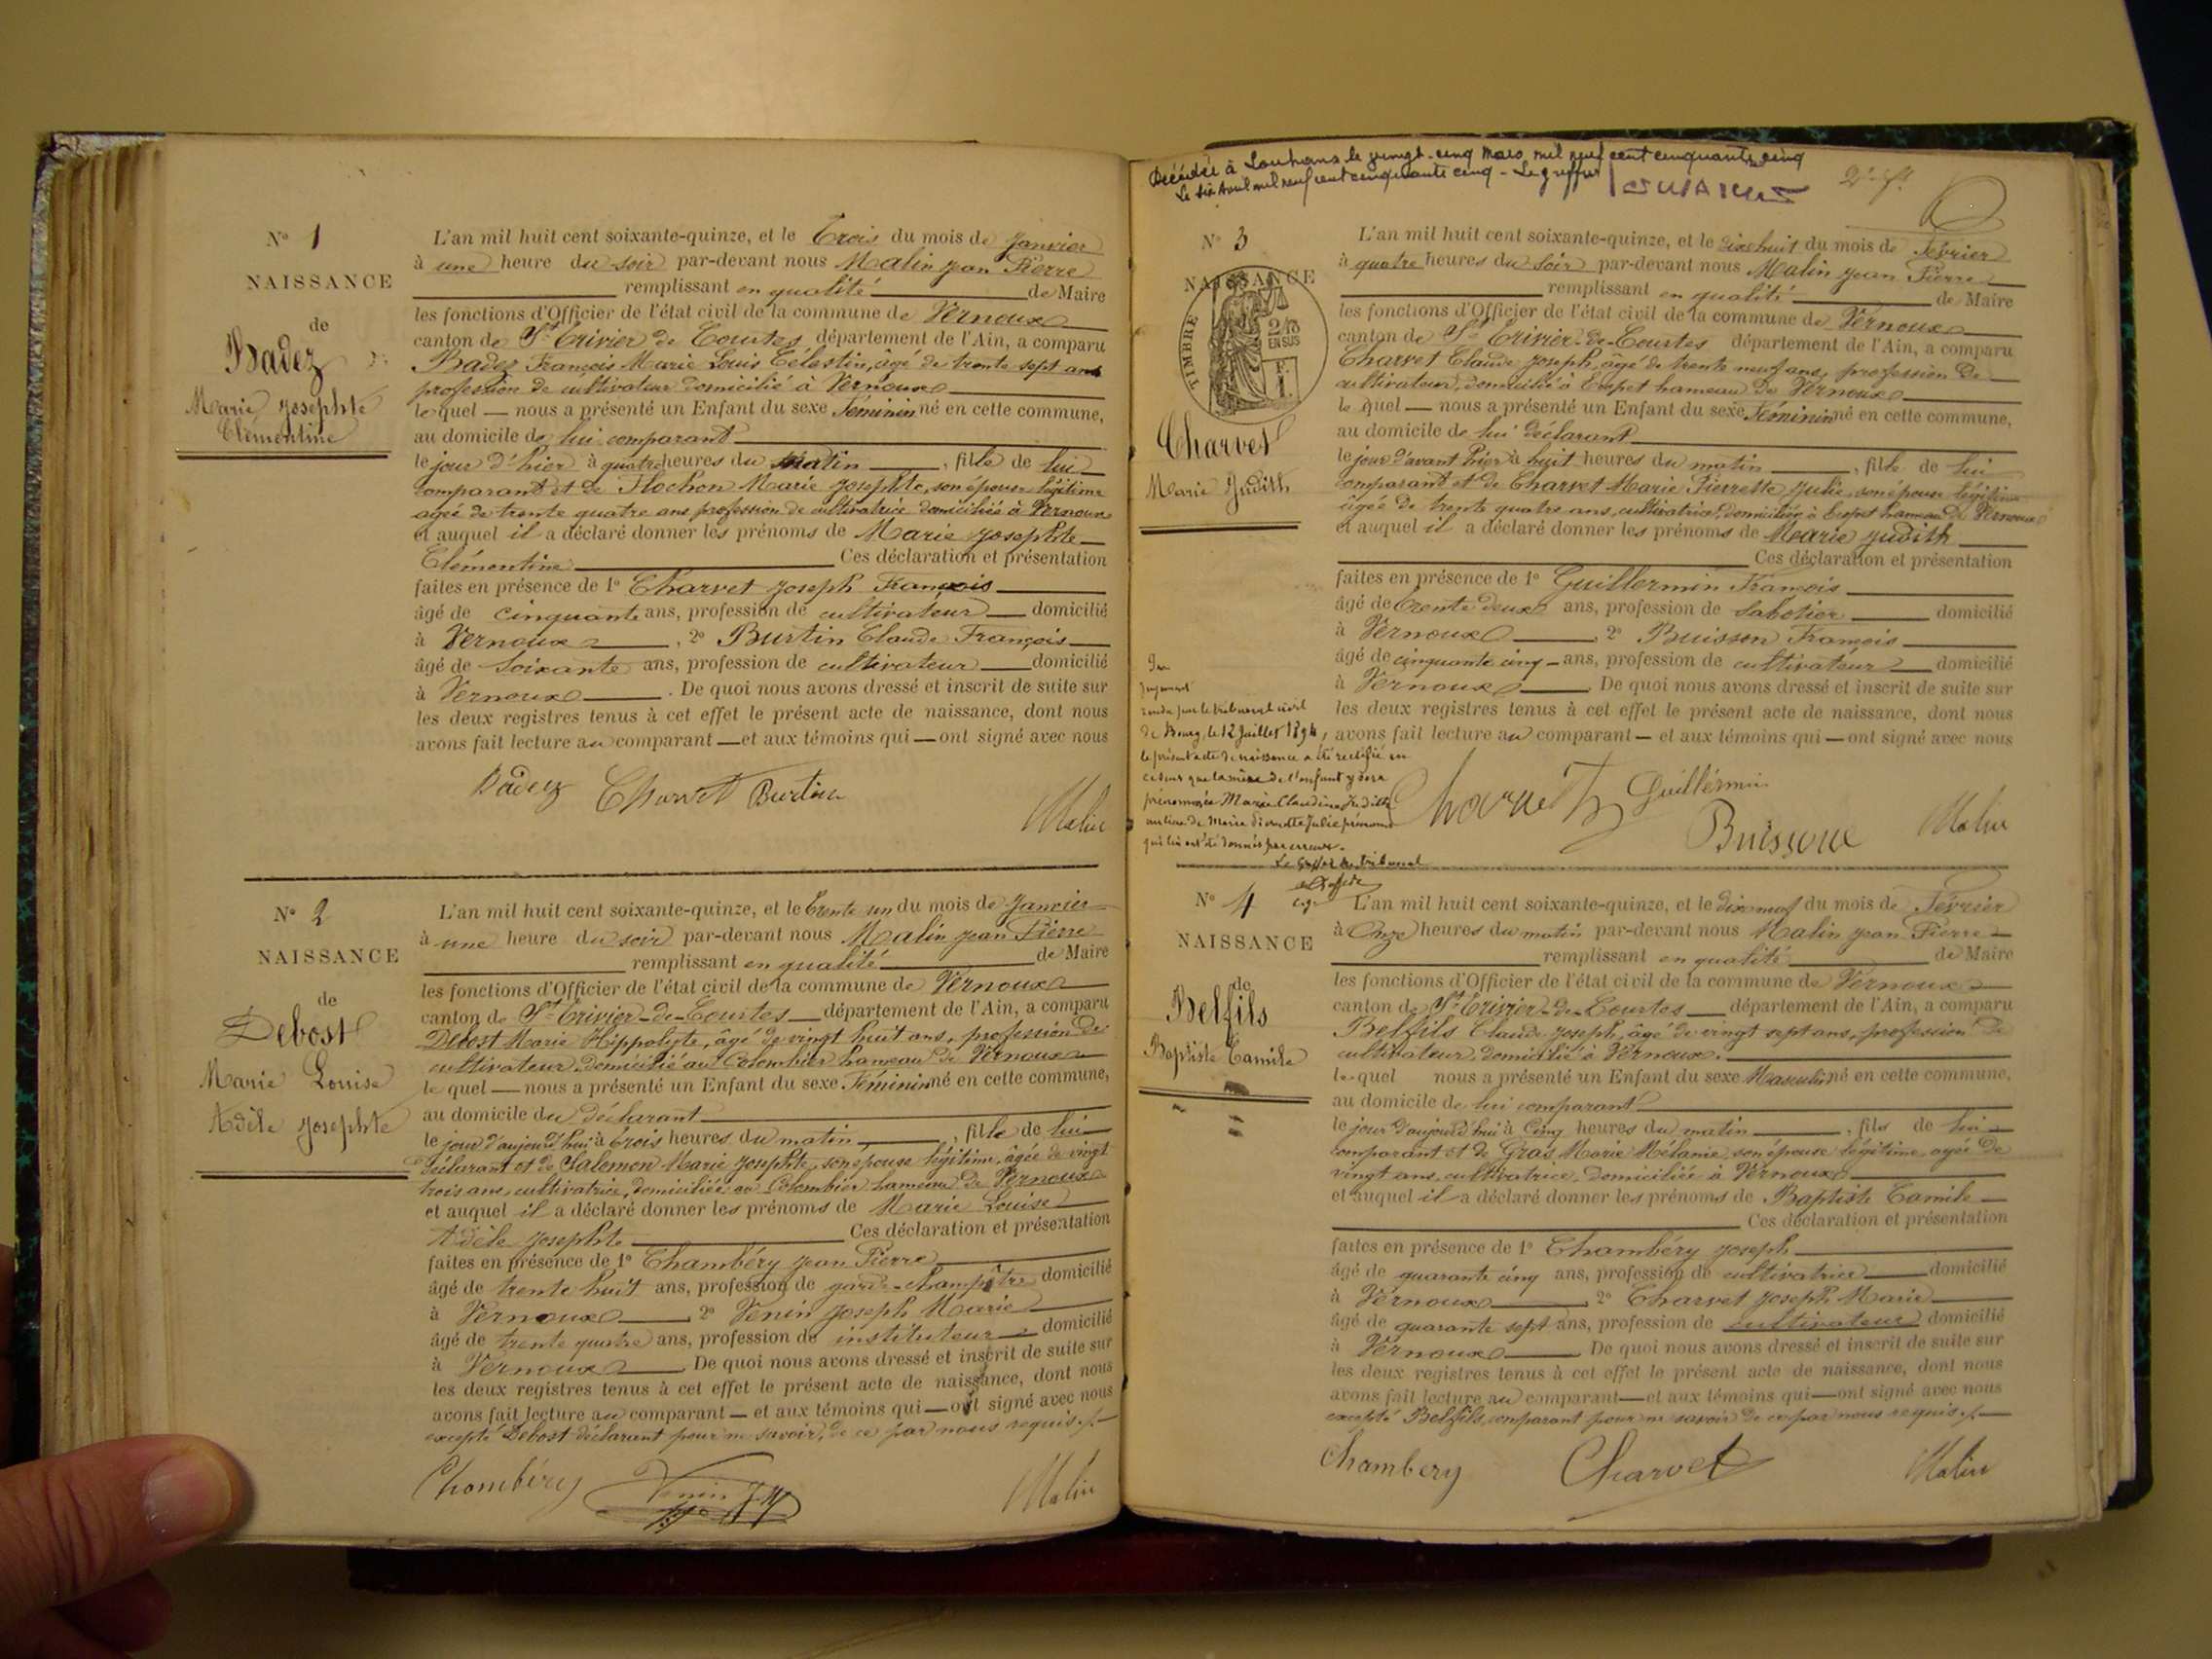 N° 1
NAISSANCE
de
Badez
Marie Josephte
Clémentine
L'an mil huit cent soixante-quinze, et le Trois du mois de Janvier
à une heure du soir par-devant nous Malin Jean Pierre
remplissant en qualité de Maire
les fonctions d'Officier de l'état civil de la commune de Vernoux
canton de St Trivier de Courtes département de l'Ain, a comparu
Badez François Marie Louis Célestin, âgé de trente sept ans
profession de cultivateur domicilié à Vernoux
lequel nous a présenté un Enfant du sexe Féminin né en cette commune,
au domicile de lui comparant
le jour d'hier à quatre heures du matin, fille de lui
comparant et de Flochon Marie Josephte, son épouse légitime
agée de trente quatre ans profession de cultivatrice domiciliée à Vernoux
et auquel il a déclaré donner les prénoms de Marie Josephte
Clémentine Ces déclaration et présentation
faites en présence de 1° Charvet Joseph François
âgé de cinquante ans, profession de cultivateur domicilié
à Vernoux, 2° Burtin Claude François
âgé de soixante ans, profession de cultivateur domicilié
à Vernoux. De quoi nous avons dressé et inscrit de suite sur
les deux registres tenus à cet effet le présent acte de naissance, dont nous
avons fait lecture au comparant et aux témoins qui ont signé avec nous
Badez Charvet Burtin
Malin
N° 2
NAISSANCE
de
Debost
Marie Louise
Adèle Josephte
L'an mil huit cent soixante-quinze, et le Trente un du mois de Janvier
à une heure du soir par-devant nous Malin Jean Pierre
remplissant en qualité de Maire
les fonctions d'Officier de l'état civil de la commune de Vernoux
canton de St Trivier-de-Courtes département de l'Ain, a comparu
Debost Marie Hippolyte, âgé de vingt huit ans, profession de
cultivateur, domicilié au Colombier hameau de Vernoux
le quel nous a présenté un Enfant du sexe Féminin né en cette commune,
au domicile du déclarant
le jour d'aujourd'hui à trois heures du matin, fille de lui
déclarant et de Salemon Marie Josephte, son épouse légitime, agée de vingt
trois ans, cultivatrice, domiciliée au Colombier hameau de Vernoux
et auquel il a déclaré donner les prénoms de Marie Louise
Adèle Josephte Ces déclaration et présentation
faites en présence de 1° Chambéry Jean Pierre
âgé de trente huit ans, profession de garde-champêtre domicilié
à Vernoux, 2° Venin Joseph Marie
âgé de trente quatre ans, profession de instituteur domicilié
à Vernoux De quoi nous avons dressé et inscrit de suite sur
les deux registres tenus à cet effet le présent acte de naissance, dont nous
avons fait lecture au comparant et aux témoins qui ont signé avec nous
excepté Debost déclarant pour ne savoir, de ce par nous requis
Chambéry Venin J M Malin
Décédée à Louhans le vingt-cinq Mars mil neuf cent cinquante cinq
Le six Avril mil neuf cent cinquante cinq - Le greffier
N° 3
NAISSANCE
TIMBRE
2/10
EN SUS
F.
1.
Charvet
Marie Judith
L'an mil huit cent soixante-quinze, et le dix huit du mois de Février
à quatre heures du soir par-devant nous Malin Jean Pierre
remplissant en qualité de Maire
les fonctions d'Officier de l'état civil de la commune de Vernoux
canton de St Trivier-de-Courtes département de l'Ain, a comparu
Charvet Claude Joseph, âgé de trente neuf ans, profession de
cultivateur, domicilié à Empet hameau de Vernoux
le quel nous a présenté un Enfant du sexe Féminin né en cette commune,
au domicile de lui déclarant
le jour d'avant hier à huit heures du matin, fille de lui
comparant et de Charvet Marie Pierrette Julie, son épouse légitime
âgée de trente quatre ans, cultivatrice, domiciliée à Empet hameau de Vernoux
et auquel il a déclaré donner les prénoms de Marie Judith
Ces déclaration et présentation
faites en présence de 1° Guillermin François
âgé de trente deux ans, profession de sabotier domicilié
à Vernoux, 2° Buisson François
âgé de cinquante cinq ans, profession de cultivateur domicilié
à Vernoux De quoi nous avons dressé et inscrit de suite sur
les deux registres tenus à cet effet le présent acte de naissance, dont nous
avons fait lecture au comparant et aux témoins qui ont signé avec nous
Charvet Guillermin
Buisson Malin
jugement
rendu par le tribunal civil
de Bourg, le 12 Juillet 1894,
le présent acte de naissance a été rectifié en
ce sens que la mère de l'enfant y sera
prénommée Marie Claudine Judith
au lieu de Marie Pierrette Julie prénoms
qui lui ont été donnés par erreur.
Le Greffier du tribunal
N° 4
NAISSANCE
de
Belfils
Baptiste Camile
L'an mil huit cent soixante-quinze, et le dix neuf du mois de Février
à Onze heures du matin par-devant nous Malin Jean Pierre
remplissant en qualité de Maire
les fonctions d'Officier de l'état civil de la commune de Vernoux
canton de St Trivier-de-Courtes département de l'Ain, a comparu
Belfils Claude Joseph, âgé de vingt sept ans, profession de
cultivateur, domicilié à Vernoux.
le quel nous a présenté un Enfant du sexe Masculin né en cette commune,
au domicile de lui comparant
le jour d'aujourd'hui à Cinq heures du matin, fils de lui
comparant et de Gras Marie Mélanie, son épouse légitime, agée de
vingt ans, cultivatrice, domiciliée à Vernoux
et auquel il a déclaré donner les prénoms de Baptiste Camile
Ces déclaration et présentation
faites en présence de 1° Chambéry Joseph
âgé de quarante cinq ans, profession de cultivatrice domicilié
à Vernoux, 2° Charvet Joseph Marie
âgé de quarante sept ans, profession de cultivateur domicilié
à Vernoux De quoi nous avons dressé et inscrit de suite sur
les deux registres tenus à cet effet le présent acte de naissance, dont nous
avons fait lecture au comparant et aux témoins qui ont signé avec nous
excepté Belfils, comparant pour ne savoir de ce par nous requis
Chambery Charvet Malin